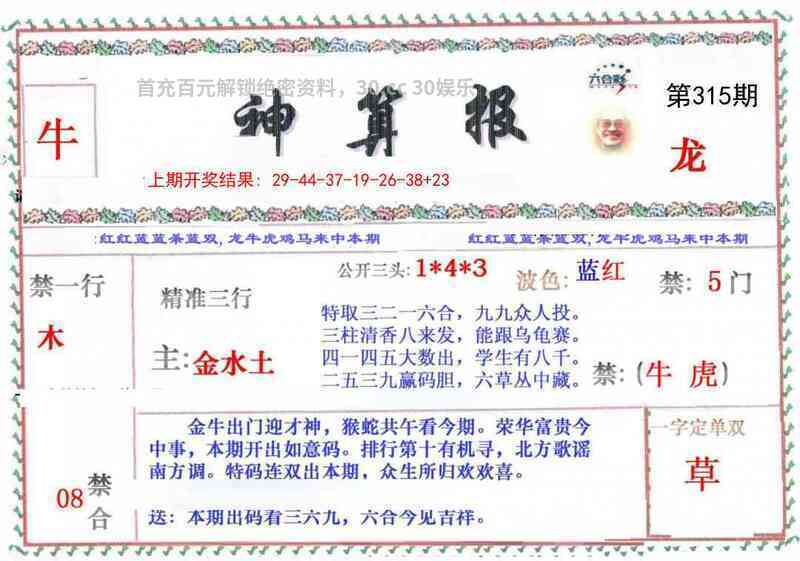 首充百元解锁绝密资料，30.cc 30娱乐
六合彩
第315期
牛
神算报
龙
上期开奖结果：29-44-37-19-26-38+23
红红蓝蓝杀蓝双,龙牛虎鸡马来中本期
红红蓝蓝杀蓝双,龙牛虎鸡马来中本期
禁一行
木
精准三行
主:金水土
公开三头:1*4*3
波色:蓝红
禁:5门
特取三二一六合，九九众人投。
三柱清香八来发，能跟乌龟赛。
四一四五大数出，学生有八千。
二五三九赢码胆，六草丛中藏。
禁:(牛 虎)
08
禁合
金牛出门迎才神，猴蛇共午看今期。荣华富贵今
中事，本期开出如意码。排行第十有机寻，北方歌谣
南方调。特码连双出本期，众生所归欢欢喜。
送：本期出码看三六九，六合今见吉祥。
一字定单双
草